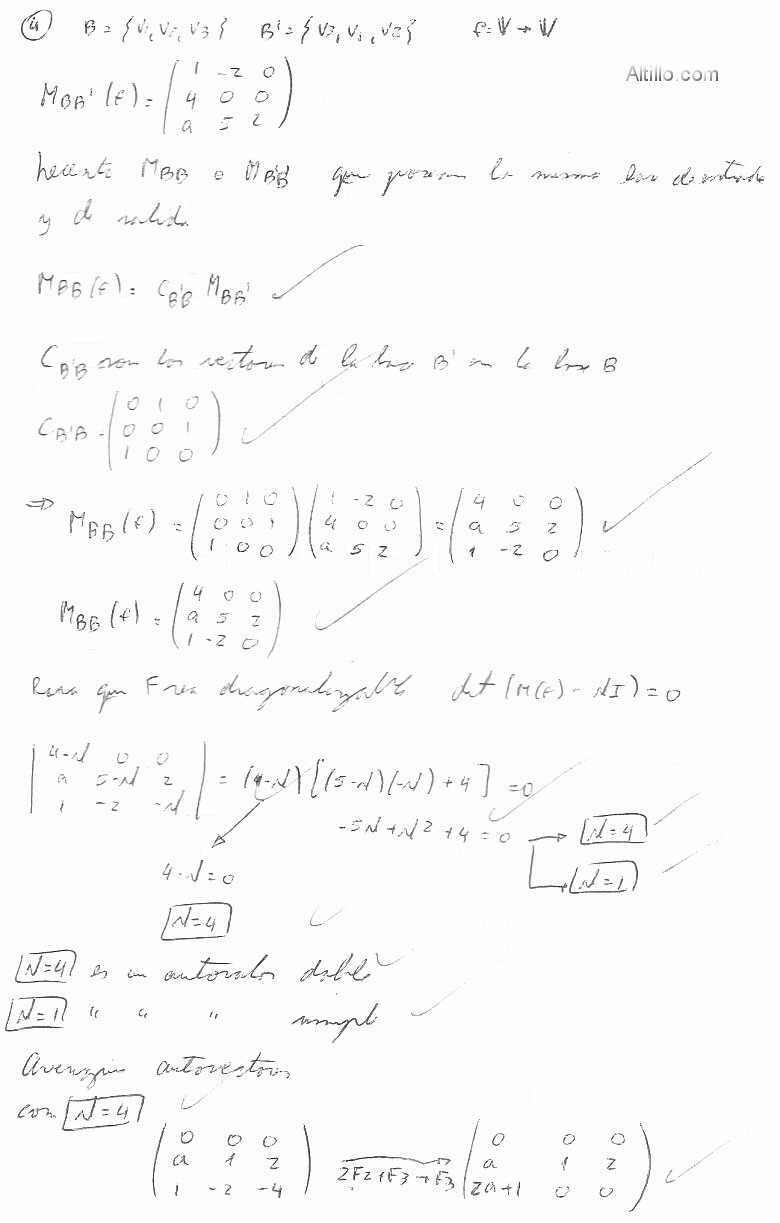 4 B = {V1, V2, V3} B' = {V3, V1, V2} f: V → V
Altillo.com
M_BB'(f) = (1 -2 0 / 4 0 0 / a 5 2)
necesito M_BB o M_B'B' que posean la misma base de entrada
y de salida
M_BB(f) = C_B'B M_BB'
C_B'B son los vectores de la base B' en la base B
C_B'B = (0 1 0 / 0 0 1 / 1 0 0)
⇒ M_BB(f) = (0 1 0 / 0 0 1 / 1 0 0) (1 -2 0 / 4 0 0 / a 5 2) = (4 0 0 / a 5 2 / 1 -2 0)
M_BB(f) = (4 0 0 / a 5 2 / 1 -2 0)
Para que F sea diagonalizable det (M(f) - λI) = 0
|4-λ 0 0 / a 5-λ 2 / 1 -2 -λ| = (4-λ) [(5-λ)(-λ) + 4] = 0
-5λ + λ² + 4 = 0 → λ=4
λ=1
4-λ=0
λ=4
λ=4 es un autovalor doble
λ=1 " " " simple
Averiguo autovectores
con λ=4
(0 0 0 / a 1 2 / 1 -2 -4) 2F2+F3→F3 (0 0 0 / a 1 2 / 2a+1 0 0)